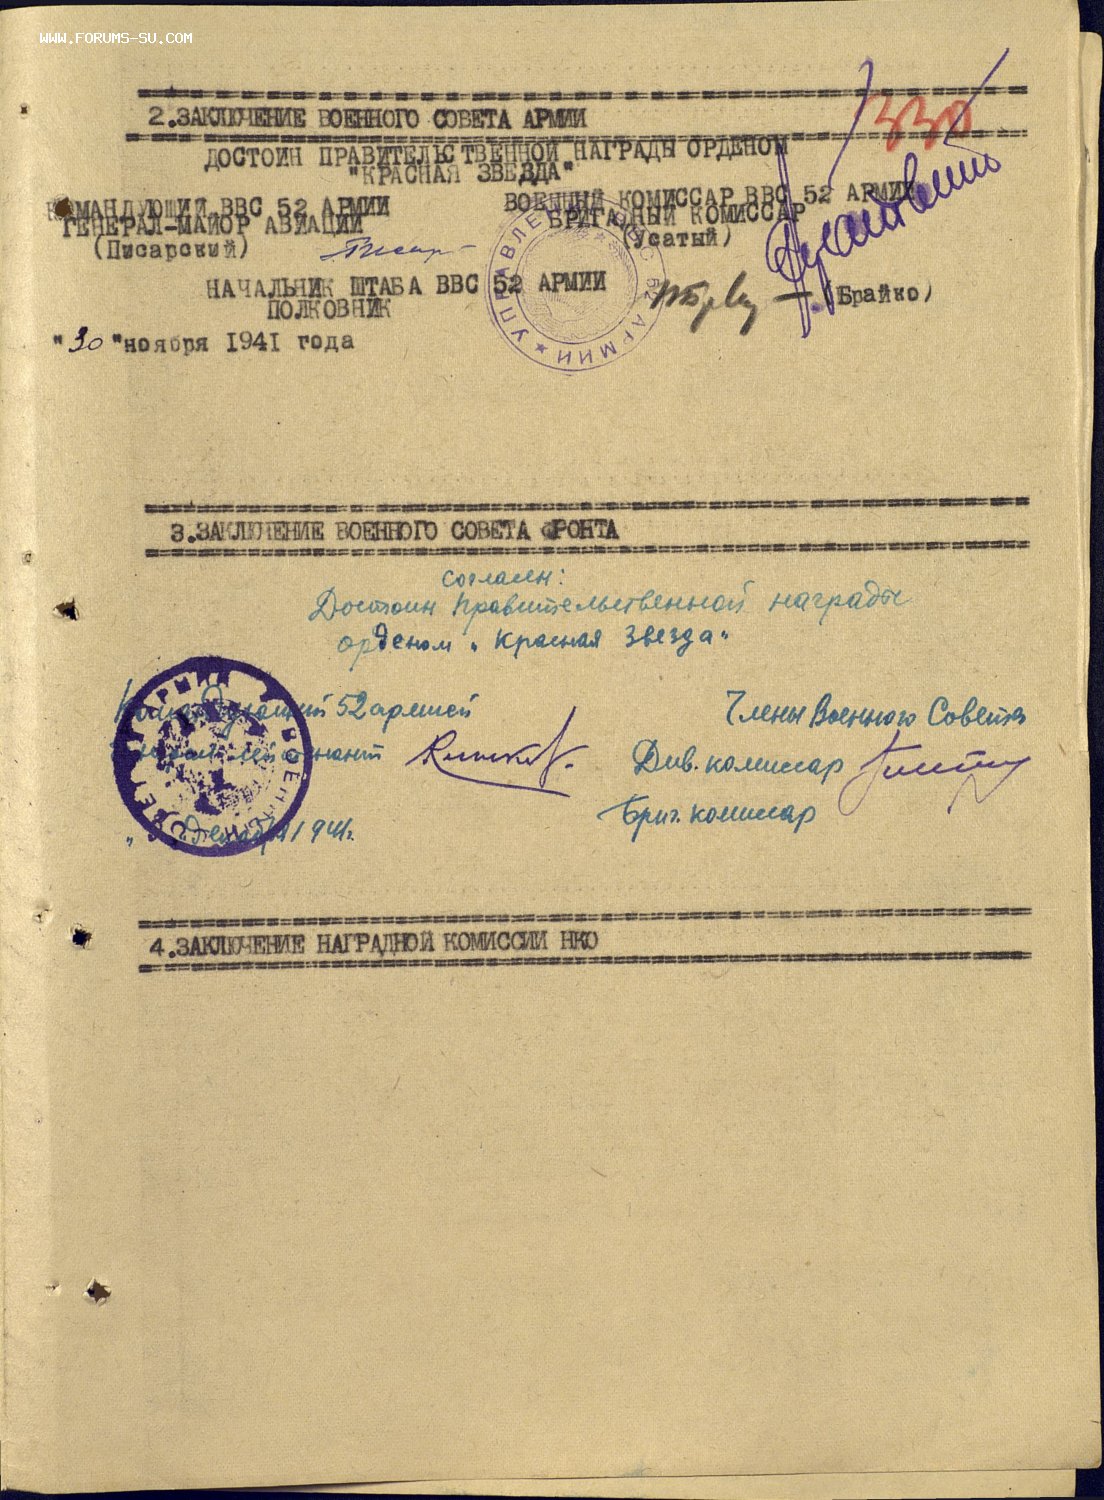 WWW.FORUMS-SU.COM
330
2.ЗАКЛЮЧЕНИЕ ВОЕННОГО СОВЕТА АРМИИ
ДОСТОИН ПРАВИТЕЛЬСТВЕННОЙ НАГРАДЫ ОРДЕНОМ
"КРАСНАЯ ЗВЕЗДА"
КОМАНДУЮЩИЙ ВВС 52 АРМИИ
ГЕНЕРАЛ-МАЙОР АВИАЦИИ
(Писарский)
ВОЕННЫЙ КОМИССАР ВВС 52 АРМИИ
БРИГАДНЫЙ КОМИССАР
(Усатый)
УПРАВЛЕНИЕ ВВС 52 АРМИИ
НАЧАЛЬНИК ШТАБА ВВС 52 АРМИИ
ПОЛКОВНИК
(Брайко)
"30"ноября 1941 года
3.ЗАКЛЮЧЕНИЕ ВОЕННОГО СОВЕТА ФРОНТА
согласен:
Достоин правительственной награды
орденом "Красная Звезда"
Командующий 52 армией
Члены Военного Совета
Див. комиссар
Бриг. комиссар
декабря 1941г.
4.ЗАКЛЮЧЕНИЕ НАГРАДНОЙ КОМИССИИ НКО